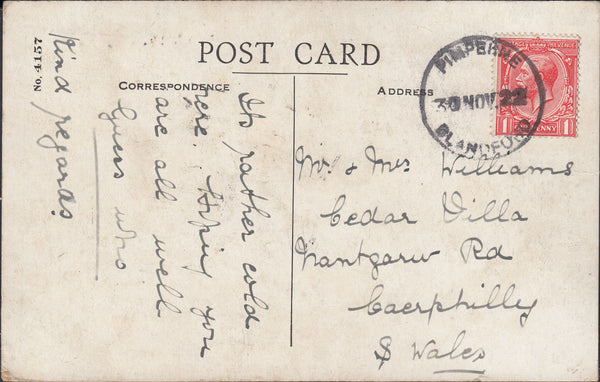 No. 4157
POST CARD
CORRESPONDENCE
ADDRESS
Its rather cold
here. Hoping you
are all well
Guess who
Kind regards
PIMPERNE
30 NOV. 22
BLANDFORD
POSTAGE REVENUE
1 PENNY 1
Mr. & Mrs Williams
Cedar Villa
Nantgarw Rd
Caerphilly
S Wales